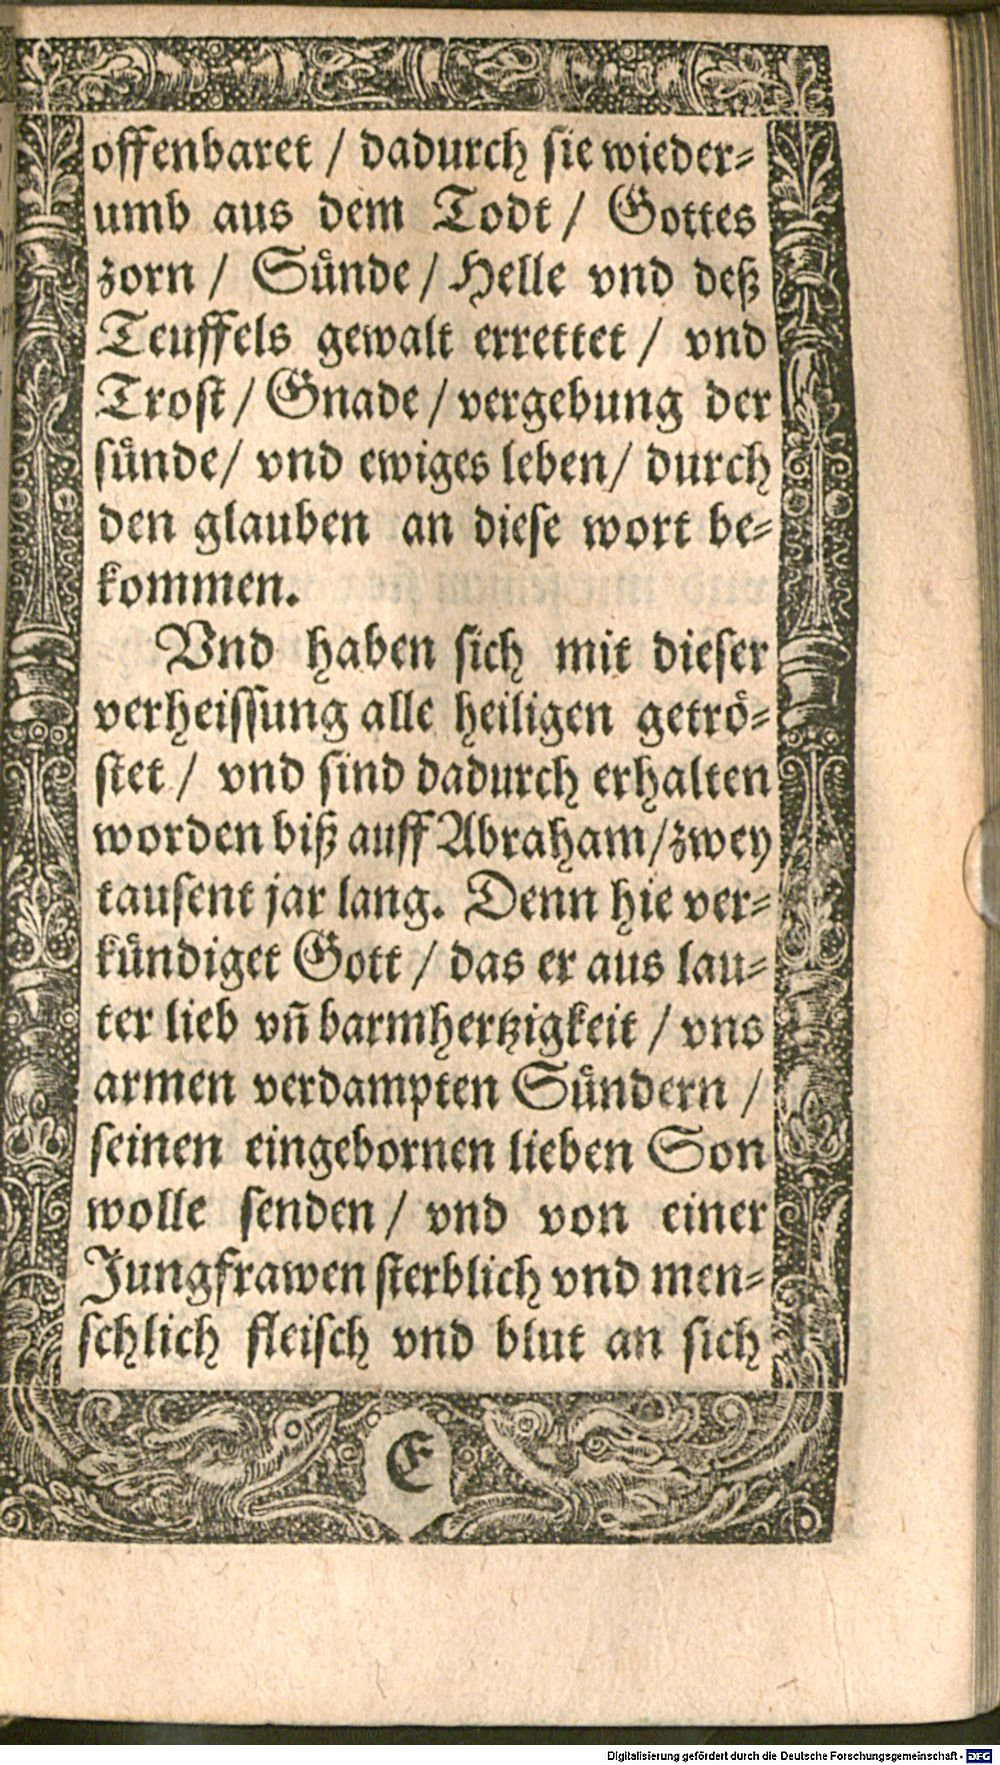 offenbaret / dadurch sie wieder-
umb aus dem Todt / Gottes
zorn / Sünde / Helle vnd deß
Teuffels gewalt errettet / vnd
Trost / Gnade / vergebung der
sünde / vnd ewiges leben / durch
den glauben an diese wort be-
kommen.
Vnd haben sich mit dieser
verheissung alle heiligen getrö-
stet / vnd sind dadurch erhalten
worden biß auff Abraham / zwey
tausent jar lang. Denn hie ver-
kündiget Gott / das er aus lau-
ter lieb vn̄ barmhertzigkeit / vns
armen verdampten Sündern /
seinen eingebornen lieben Son
wolle senden / vnd von einer
Jungfrawen sterblich vnd men-
schlich fleisch vnd blut an sich
E
Digitalisierung gefördert durch die Deutsche Forschungsgemeinschaft - DFG